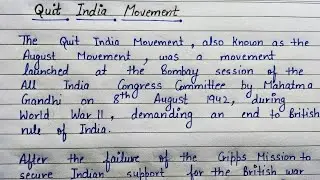 Quit India Movement
The Quit India Movement, also known as the
August Movement, was a movement
launched at the Bombay session of the
All India Congress Committee by Mahatma
Gandhi on 8th August 1942, during
World War II, demanding an end to British
rule of India.
After the failure of the Cripps Mission to
secure Indian support for the British war